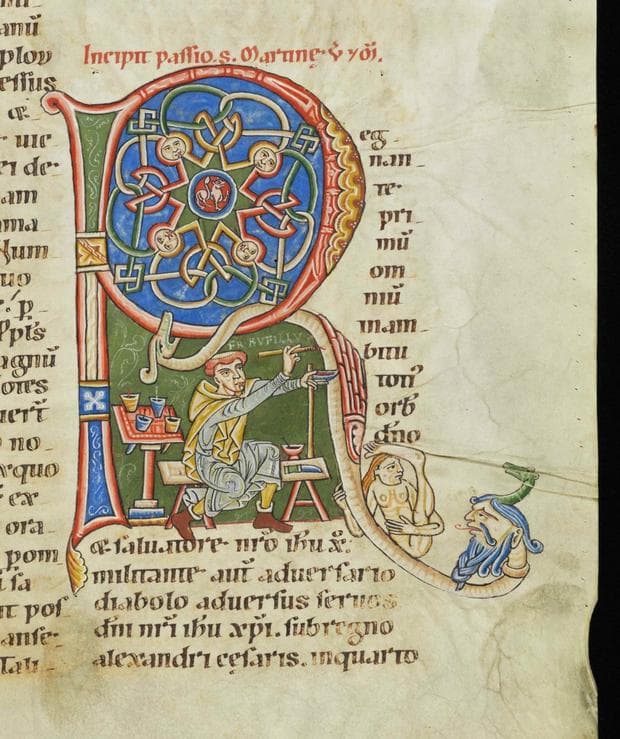 anū
essus
æ
uic
ei de
am
ama
Num
uo
agnū
uert
no
ex
ora
pom
nt pos
anse
tali
Incipit passio. s. Martine.
R
eg
nan
te
pri
mū
om
niū
bitu
orb
dn̄o
FR RVFILLVS
æ saluatore nr̄o ih̄u x̄.
militante aut aduersario
diabolo aduersus seruos
dn̄i nr̄i ih̄u xp̄i. sub regno
alexandri cęsaris. inquarto